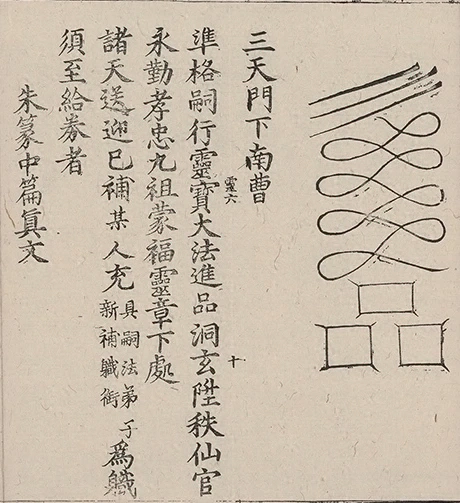 三天門下南曹
準格嗣行靈寶大法進品洞玄陞秩仙官
靈六
十
永勤孝忠九祖蒙福靈章下處
諸天送迎已補某人充具嗣法弟子
新補職銜爲職
須至給券者
朱篆中篇眞文